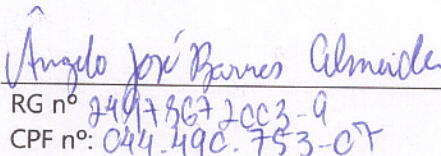 Ângelo José Barros Almeida
RG nº 24973672003-9
CPF nº: 044.490.753-07